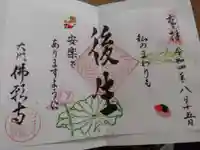 奉拝 令和四年八月十五日
私のまわりも
後生
安楽で
ありますように
大門 佛願寺